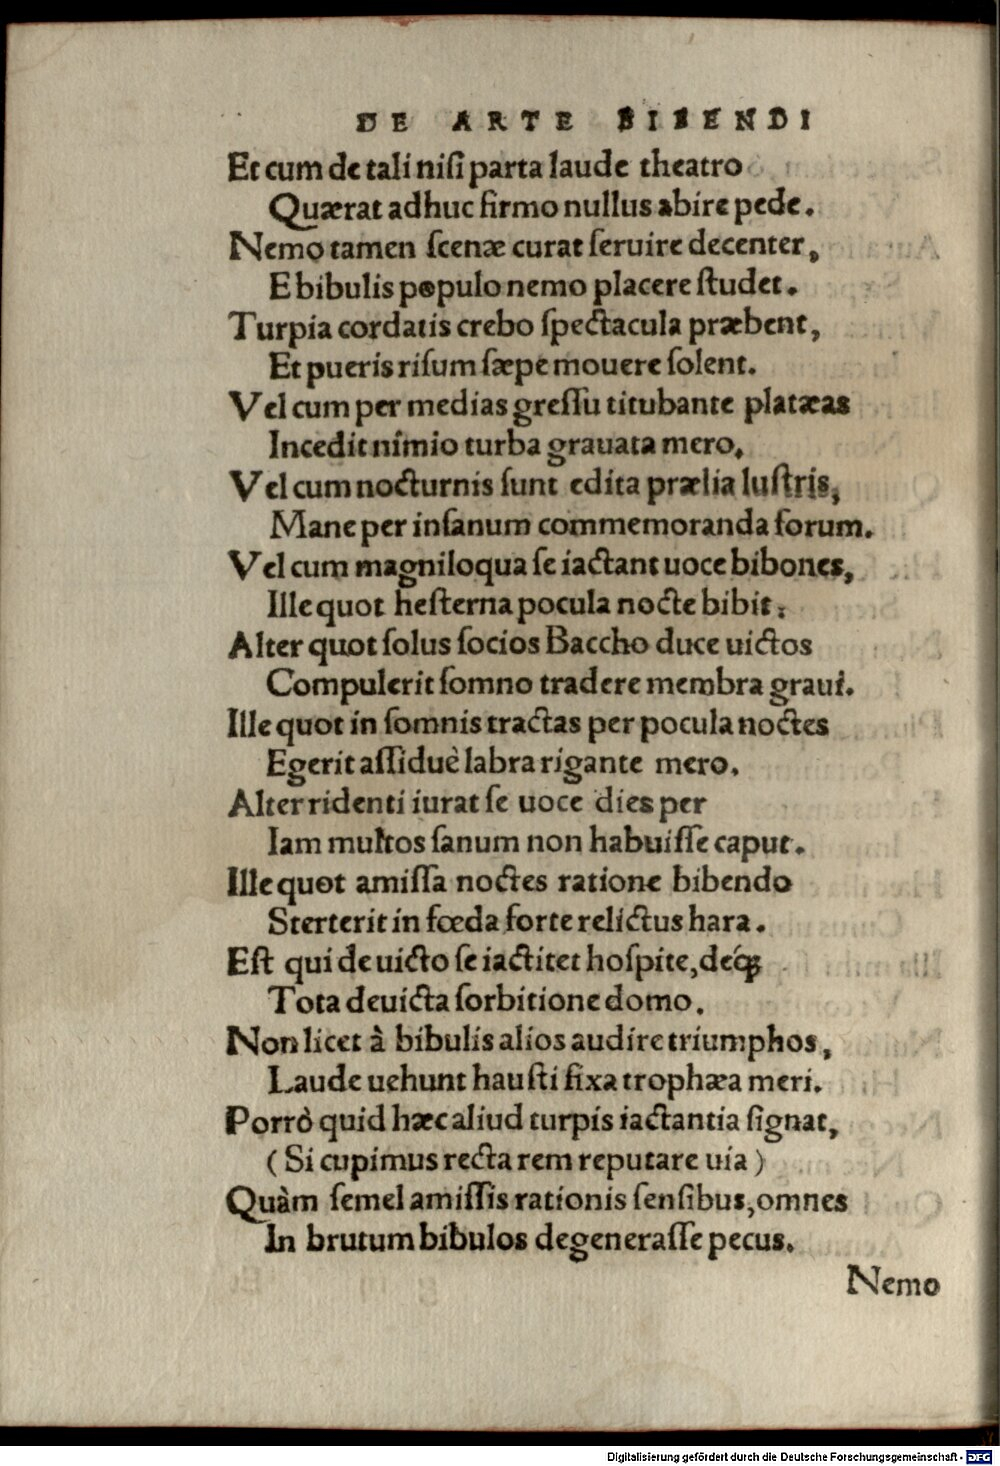 DE ARTE BIBENDI
Et cum de tali niſi parta laude theatro
Quærat adhuc firmo nullus abire pede.
Nemo tamen ſcenæ curat ſeruire decenter,
E bibulis populo nemo placere ſtudet.
Turpia cordatis crebo ſpectacula præbent,
Et pueris riſum ſæpe mouere ſolent.
Vel cum per medias greſſu titubante platæas
Incedit nimio turba grauata mero,
Vel cum nocturnis ſunt edita prælia luſtris,
Mane per inſanum commemoranda forum.
Vel cum magniloqua ſe iactant uoce bibones,
Ille quot heſterna pocula nocte bibit:
Alter quot ſolus ſocios Baccho duce uictos
Compulerit ſomno tradere membra graui.
Ille quot in ſomnis tractas per pocula noctes
Egerit aſſiduè labra rigante mero.
Alter ridenti iurat ſe uoce dies per
Iam multos ſanum non habuiſſe caput.
Ille quot amiſſa noctes ratione bibendo
Sterterit in fœda forte relictus hara.
Eſt qui de uicto ſe iactitet hoſpite, deq́;
Tota deuicta ſorbitione domo.
Non licet à bibulis alios audire triumphos,
Laude uehunt hauſti fixa trophæa meri.
Porrò quid hæc aliud turpis iactantia ſignat,
(Si cupimus recta rem reputare uia)
Quàm ſemel amiſſis rationis ſenſibus, omnes
In brutum bibulos degeneraſſe pecus.
Nemo
Digitalisierung gefördert durch die Deutsche Forschungsgemeinschaft - DFG